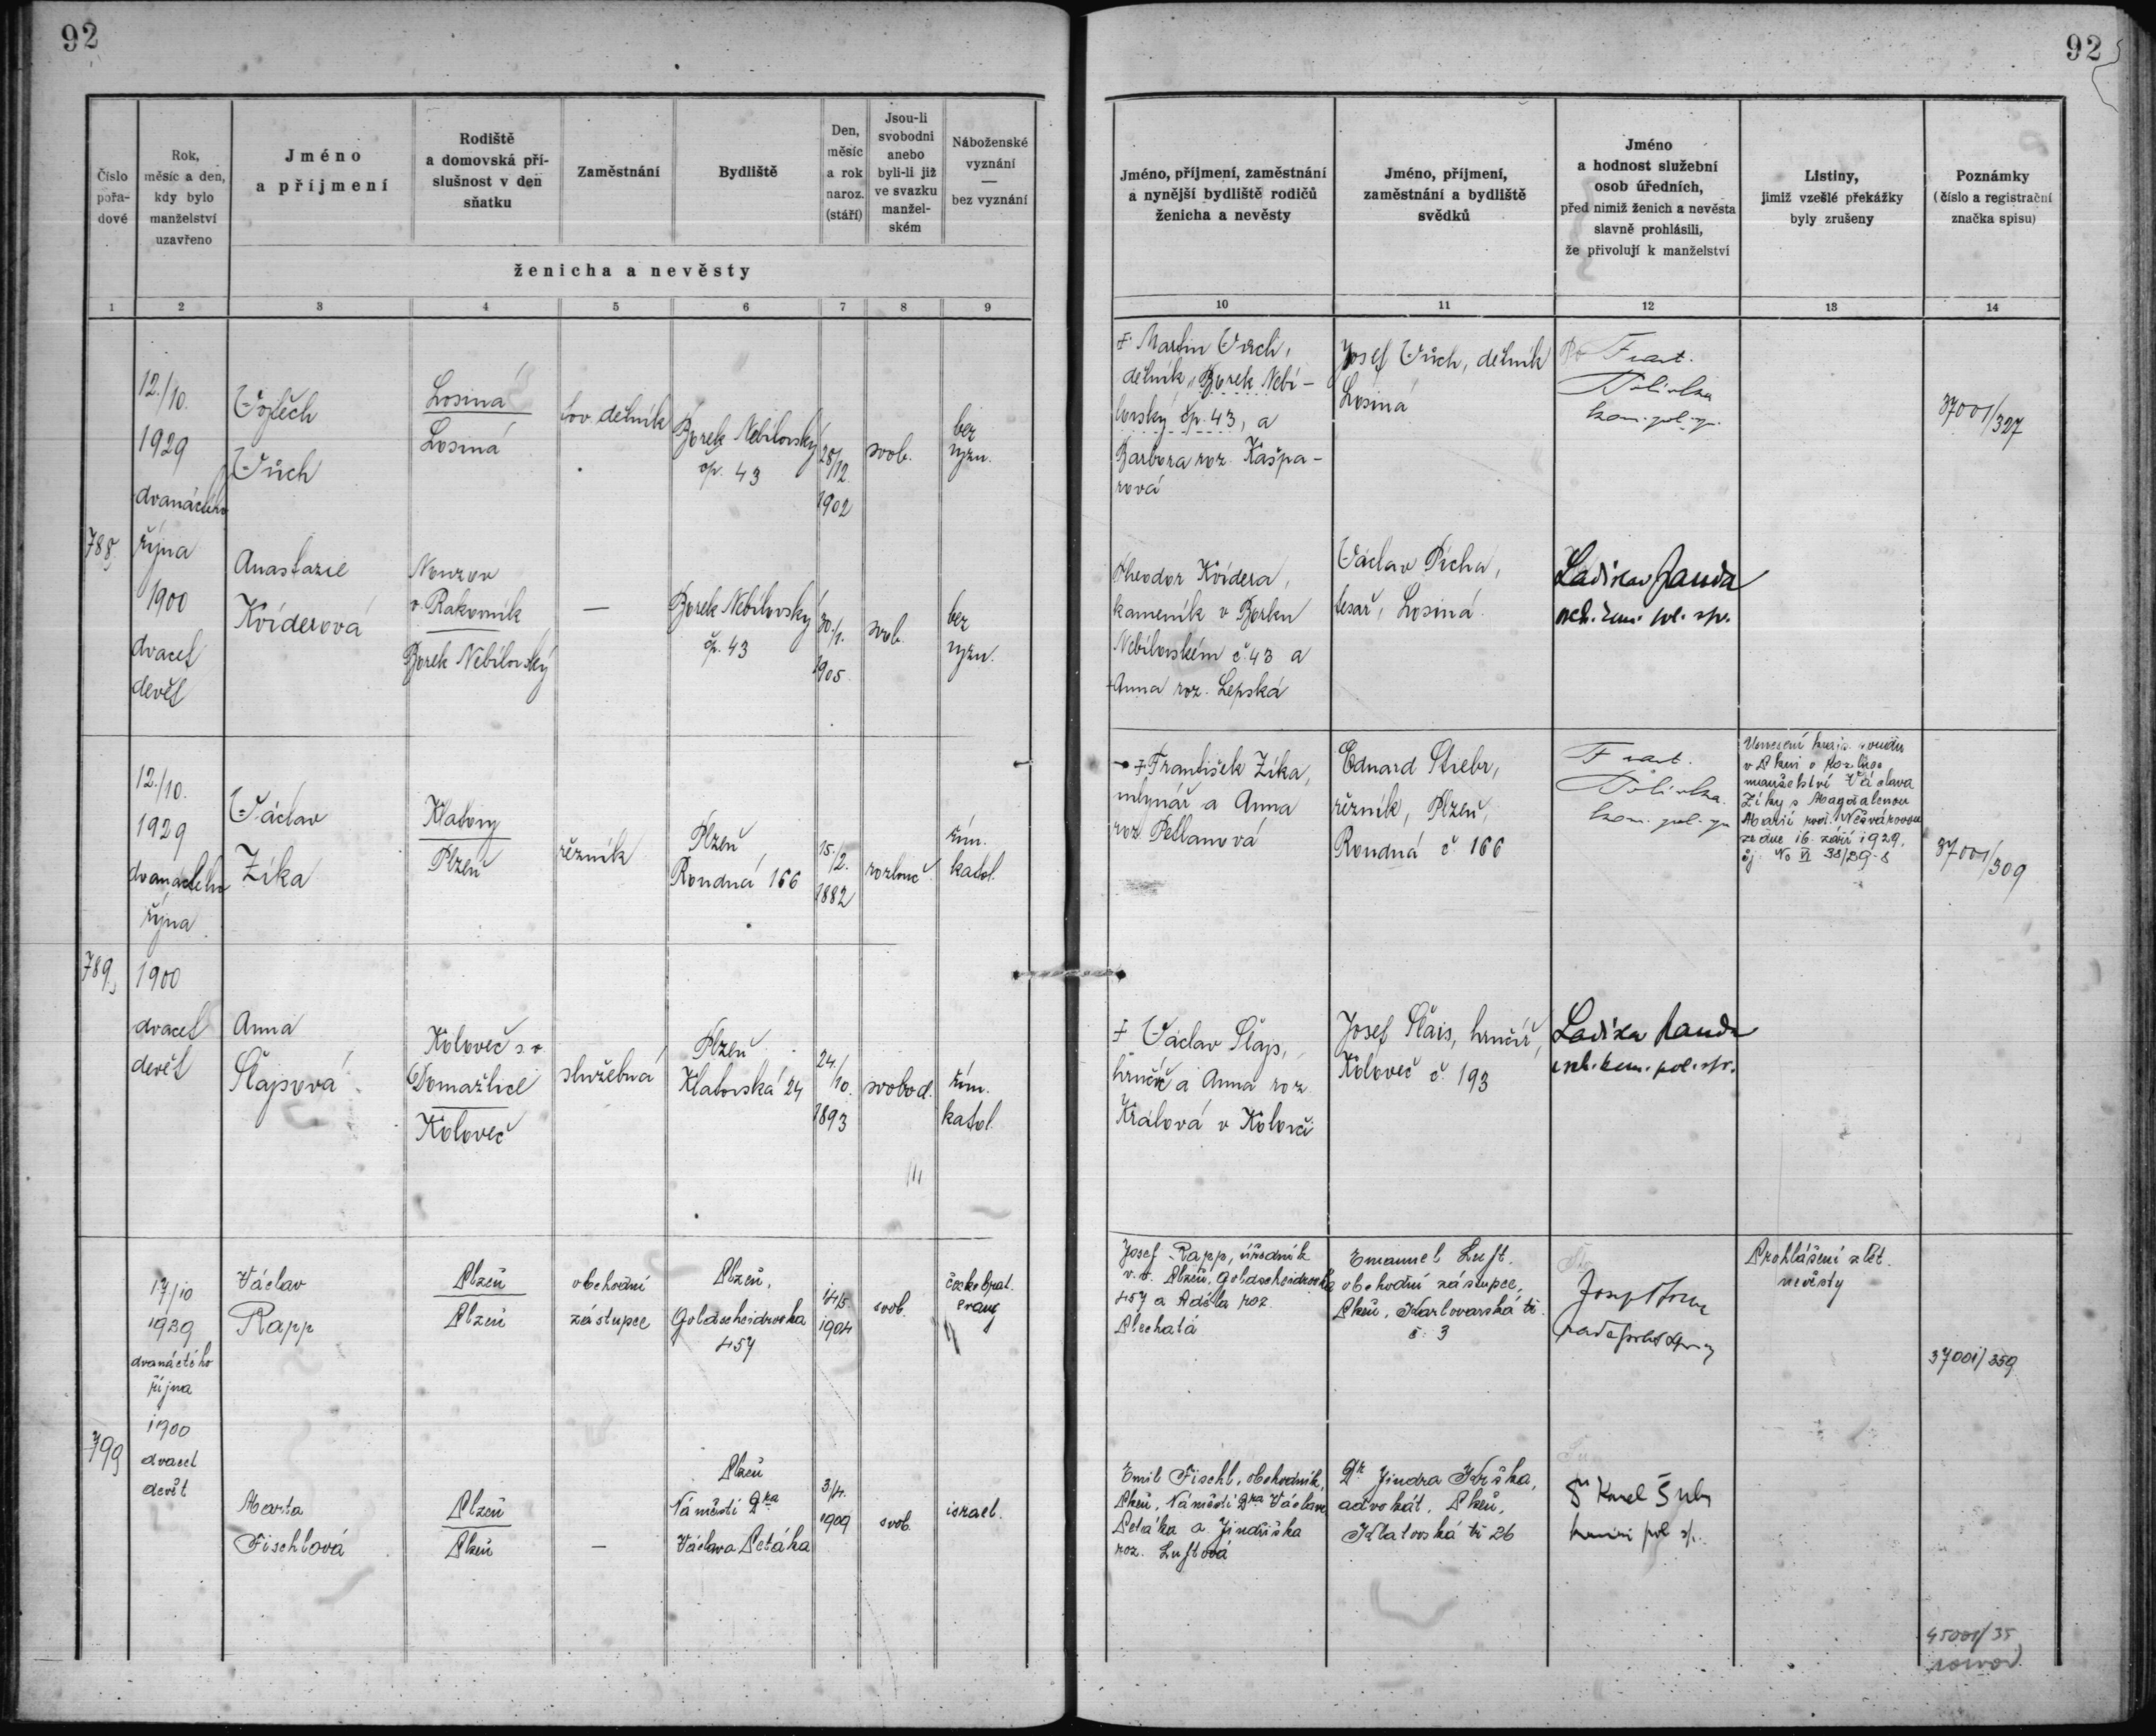 92
92
Číslo pořa-dové
Rok, měsíc a den, kdy bylo manželství uzavřeno
Jméno a příjmení
Rodiště a domovská pří-slušnost v den sňatku
Zaměstnání
Bydliště
Den, měsíc a rok naroz. (stáří)
Jsou-li svobodni anebo byli-li již ve svazku manžel-ském
Náboženské vyznání — bez vyznání
ženicha a nevěsty
Jméno, příjmení, zaměstnání a nynější bydliště rodičů ženicha a nevěsty
Jméno, příjmení, zaměstnání a bydliště svědků
Jméno a hodnost služební osob úředních, před nimiž ženich a nevěsta slavně prohlásili, že přivolují k manželství
Listiny, jimiž vzešlé překážky byly zrušeny
Poznámky (číslo a registrační značka spisu)
1 2 3 4 5 6 7 8 9
10 11 12 13 14
788
12./10.
1929
dvanáctého
října
1900
dvacet
devět
Vojtěch
Vůch
Losiná
Losiná
tov. dělník
Borek Nebílovský
čp. 43
28/12.
1902
svob.
bez
vyzn.
Martin Vůch,
dělník, Borek Nebí-
lovský čp. 43, a
Barbora roz. Kašpa-
rová
Josef Vůch, dělník
Losiná
Frant.
kom. pol. spr.
37001/327
Anastazie
Kviderová
Nouzov
v. Rakovník
Borek Nebílovský
—
Borek Nebílovský
čp. 43
30./1.
1905
svob.
bez
vyzn.
Theodor Kvidera,
kameník v Borku
Nebílovském č. 43 a
Anna roz. Lepská
Václav Pícha,
tesař, Losiná.
Ladislav Janda
pol. spr.
789
12./10.
1929
dvanáctého
října
1900
dvacet
devět
Václav
Zíka
Klatovy
Plzeň
řezník
Plzeň
Roudná 166
15/2.
1882
rozlouč.
řím.
katol.
František Zíka,
mlynář a Anna
roz.
Eduard Stiebr,
řezník, Plzeň,
Roudná č. 166
Frant.
kom. pol. spr.
Usnesení kraj. soudu
v Plzni o rozluce
manželství Václava
Zíky s Magdalenou
Marií roz.
ze dne 16. září 1929.
čj.
37001/309
Anna
Šlajsová
Koloveč
Domažlice
Koloveč
služebná
Plzeň
Klatovská 24
24./10.
1893
svobod.
řím.
katol.
Václav Šlajs,
hrnčíř a Anna roz.
Králová v Kolovči
Josef Šlais, hrnčíř,
Koloveč č. 193
Ladislav Janda
pol. spr.
799
17/10
1929
dvanáctého
října
1900
dvacet
devět
Václav
Rapp
Plzeň
Plzeň
obchodní
zástupce
Plzeň,
Goldscheidrovka
457
14/5
1904
svob.
českobrat.
evang
Josef Rapp, úředník
v. v. Plzeň, Goldscheidrovka
457 a Adéla roz.
Plechatá
Emanuel Luft,
obchodní zástupce,
Plzeň, Karlovarská tř.
č. 3
Prohlášení zlet.
nevěsty
37001/359
Marta
Fischlová
Plzeň
Plzeň
—
Plzeň
Náměstí Dra
Václava Petáka
3/4.
1909
svob.
israel.
Emil Fischl, obchodník,
Plzeň, Náměstí Dra Václava
Petáka a Jindřiška
roz. Luftová
Dr Jindra Krška,
advokát, Plzeň,
Klatovská tř 26
Karel
pol sp.
45001/35
rozvod.